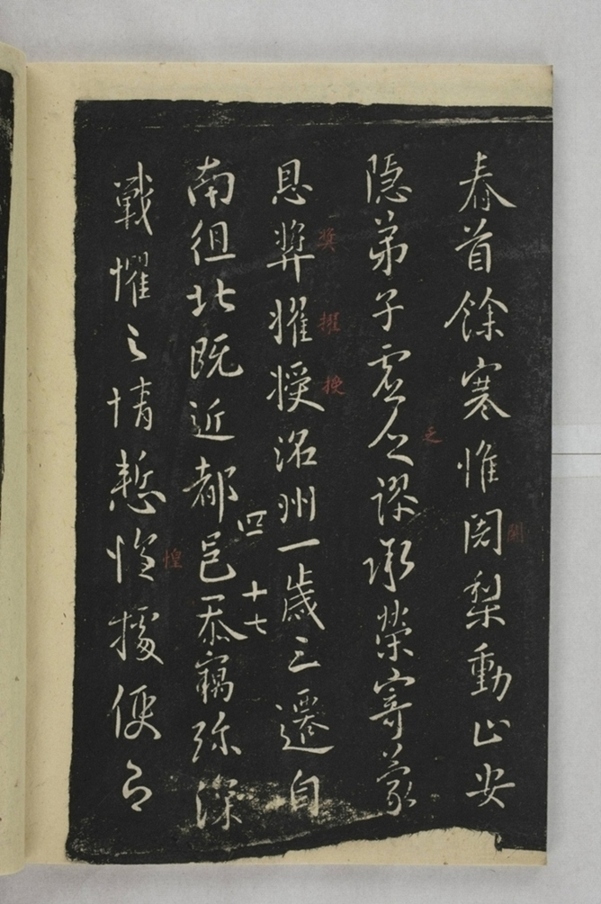 春首餘寒惟闍梨動止安
隱弟子虚乏謬承榮寄蒙
恩奨擢授洺州一歲三遷自
南徂北既近都邑忝竊弥深
戰懼之情慙惶據便又
闍
乏
奨
擢
授
惶
四
十七